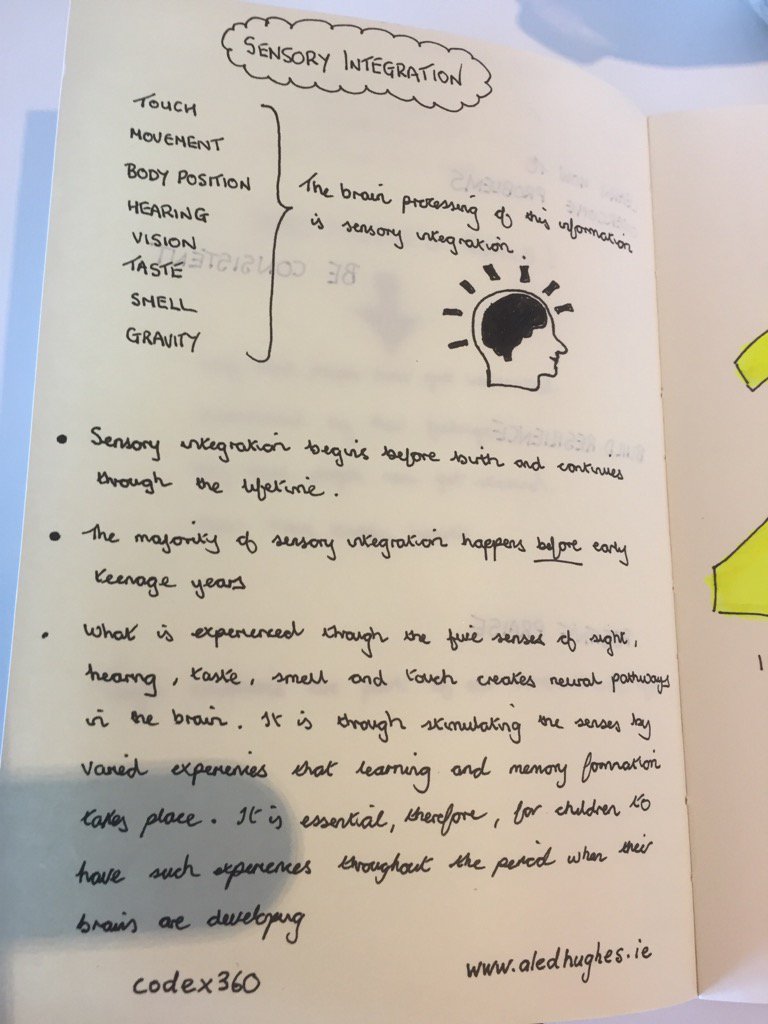 SENSORY INTEGRATION
TOUCH
MOVEMENT
BODY POSITION
HEARING
VISION
TASTE
SMELL
GRAVITY
The brain processing of this information
is sensory integration.
BE CONSISTENT
BUILD RESILIENCE
• Sensory integration begins before birth and continues
through the lifetime.
• The majority of sensory integration happens before early
teenage years
• What is experienced through the five senses of sight,
hearing, taste, smell and touch creates neural pathways
in the brain. It is through stimulating the senses by
varied experiences that learning and memory formation
takes place. It is essential, therefore, for children to
have such experiences throughout the period when their
brains are developing
codex360
www.aledhughes.ie